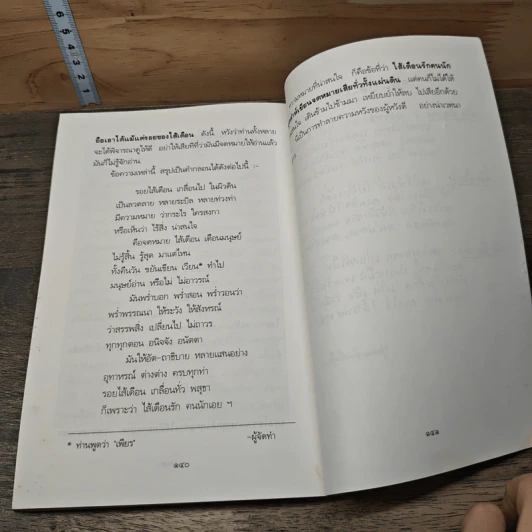 ถือเอาได้แม้แต่รอยของไส้เดือน ดังนี้ หวังว่าท่านทั้งหลาย
จะได้พิจารณาดูให้ดี อย่าให้เสียทีที่ว่ามันมีจดหมายให้อ่านแล้ว
มันก็ไม่รู้จักอ่าน
ข้อความเหล่านี้ สรุปเป็นคำกลอนได้ดังต่อไปนี้ :-
รอยไส้เดือน เกลื่อนไป ในผิวดิน
เป็นลวดลาย หลายระบิล หลายท่วงท่า
มีความหมาย ว่ากระไร ใครลงกา
หรือเห็นว่า ไร้สิ่ง น่าสนใจ
คือจดหมาย ไส้เดือน เตือนมนุษย์
ไม่รู้สิ้น รู้สุด มาแต่ไหน
ทั้งคืนวัน ขยันเขียน เวียน* ทำไป
มนุษย์อ่าน หรือไม่ ไม่อาวรณ์
มันพร่ำบอก พร่ำสอน พร่ำวอนว่า
พร่ำพรรณนา ให้ระวัง ให้สังหรณ์
ว่าสรรพสิ่ง เปลี่ยนไป ไม่ถาวร
ทุกทุกตอน อนิจจัง อนัตตา
มันให้อัต-ถาธิบาย หลายแสนอย่าง
อุทาหรณ์ ต่างต่าง ครบทุกท่า
รอยไส้เดือน เกลื่อนทั่ว พสุธา
ก็เพราะว่า ไส้เดือนรัก คนนักเอย ฯ
* ท่านพูดว่า "เพียร"
-ผู้จัดทำ
๑๔๐
ที่น่าสนใจ ก็คือข้อที่ว่า ไส้เดือนรักคนนัก
เขียนจดหมายเสียทั่วทั้งแผ่นดิน แต่คนก็ไม่ได้ให้
เดินข้ามไปข้ามมา เหยียบย่ำให้ลบ ไปเสียอีกด้วย
เป็นการทำลายความหวังของผู้หวังดี อย่างน่าเวทนา
๑๔๑
6
5
4
3
2
1